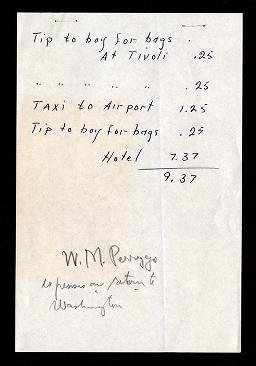 Tip to boy for bags .
At Tivoli .25
" " " " " .25
TAXI to Airport 1.25
Tip to boy for bags .25
Hotel 7.37
9.37
W. M. Perrygo
expenses on return to
Washington